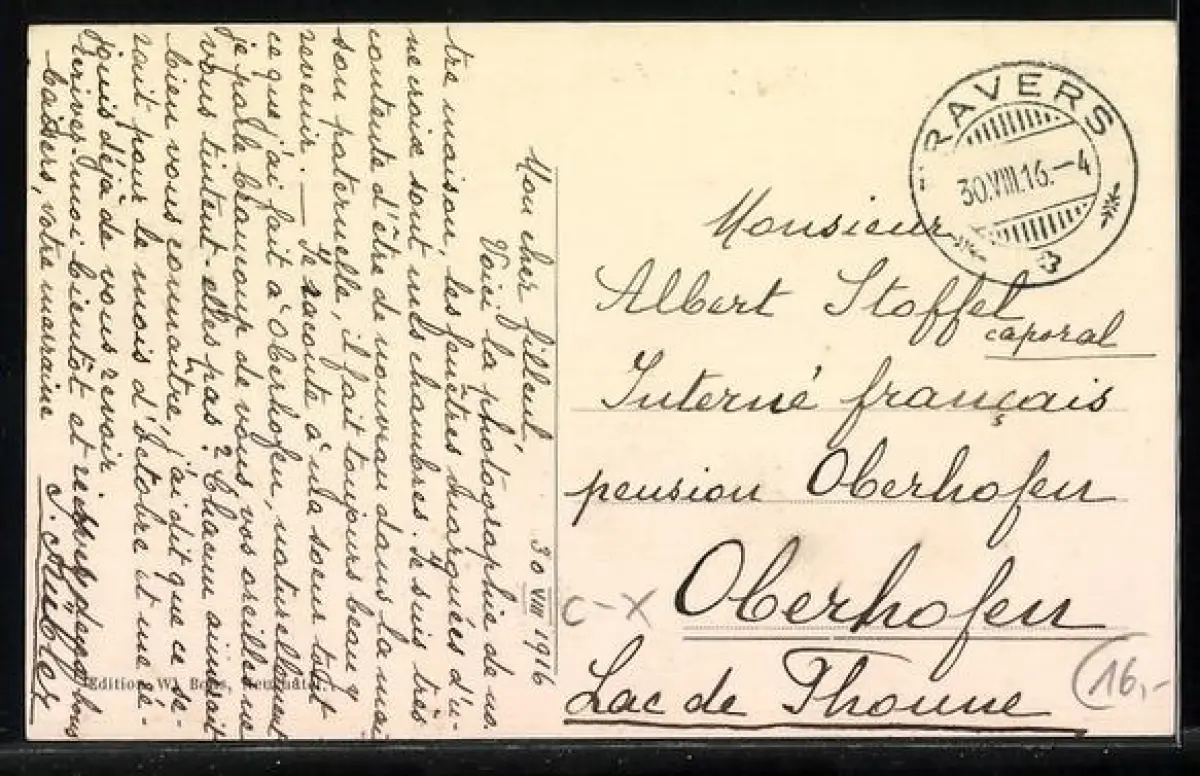 Mon cher filleul, 30 VIII 1916
Voici la photographie de no-
tre maison, les fenêtres marquées d'u-
ne croix sont mes chambres. Je suis très
contente d'être de nouveau dans la mai
son paternelle, il fait toujours beau y
revenir. — Je raconte à ma soeur tout
ce que j'ai fait à Oberhofen, naturellement
je parle beaucoup de vous, vos oreilles ne
vous tintent-elles pas? Chacun aimerait
bien vous connaître, j'ai dit que ce se-
rait pour le mois d'octobre et me ré-
jouis déjà de vous revoir.
Ecrivez-moi bientôt et
baisers, votre marraine
Edition W.
TRAVERS
30.VIII.16.-4
Monsieur
Albert Stoffel
caporal
Interné français
pension Oberhofen
Oberhofen
Lac de Thoune
C-X
16,-